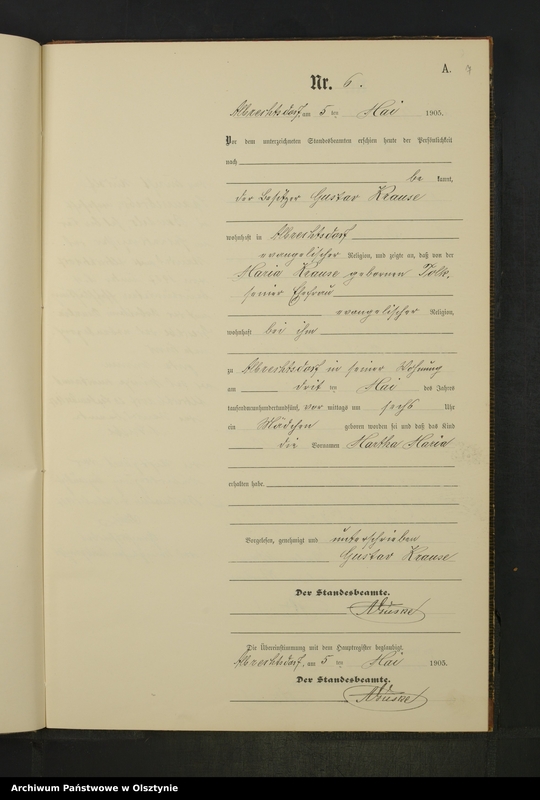 A.
Nr. 6.
Albrechtsdorf, am 5 ten Mai 1905.
Vor dem unterzeichneten Standesbeamten erschien heute der Persönlichkeit
nach
be kannt,
der Besitzer Gustav Krause
wohnhaft in Albrechtsdorf
evangelischer Religion, und zeigte an, daß von der
Maria Krause gebornen
seiner Ehefrau
evangelischer Religion,
wohnhaft bei ihm
zu Albrechtsdorf in seiner Wohnung
am drit ten Mai des Jahres
tausendneunhundertundfünf, vor mittags um sechs Uhr
ein Mädchen geboren worden sei und daß das Kind
die Vornamen Martha Maria
erhalten habe.
Vorgelesen, genehmigt und unterschrieben
Gustav Krause
Der Standesbeamte.
Die Übereinstimmung mit dem Hauptregister beglaubigt.
Albrechtsdorf, am 5 ten Mai 1905.
Der Standesbeamte.
Archiwum Państwowe w Olsztynie